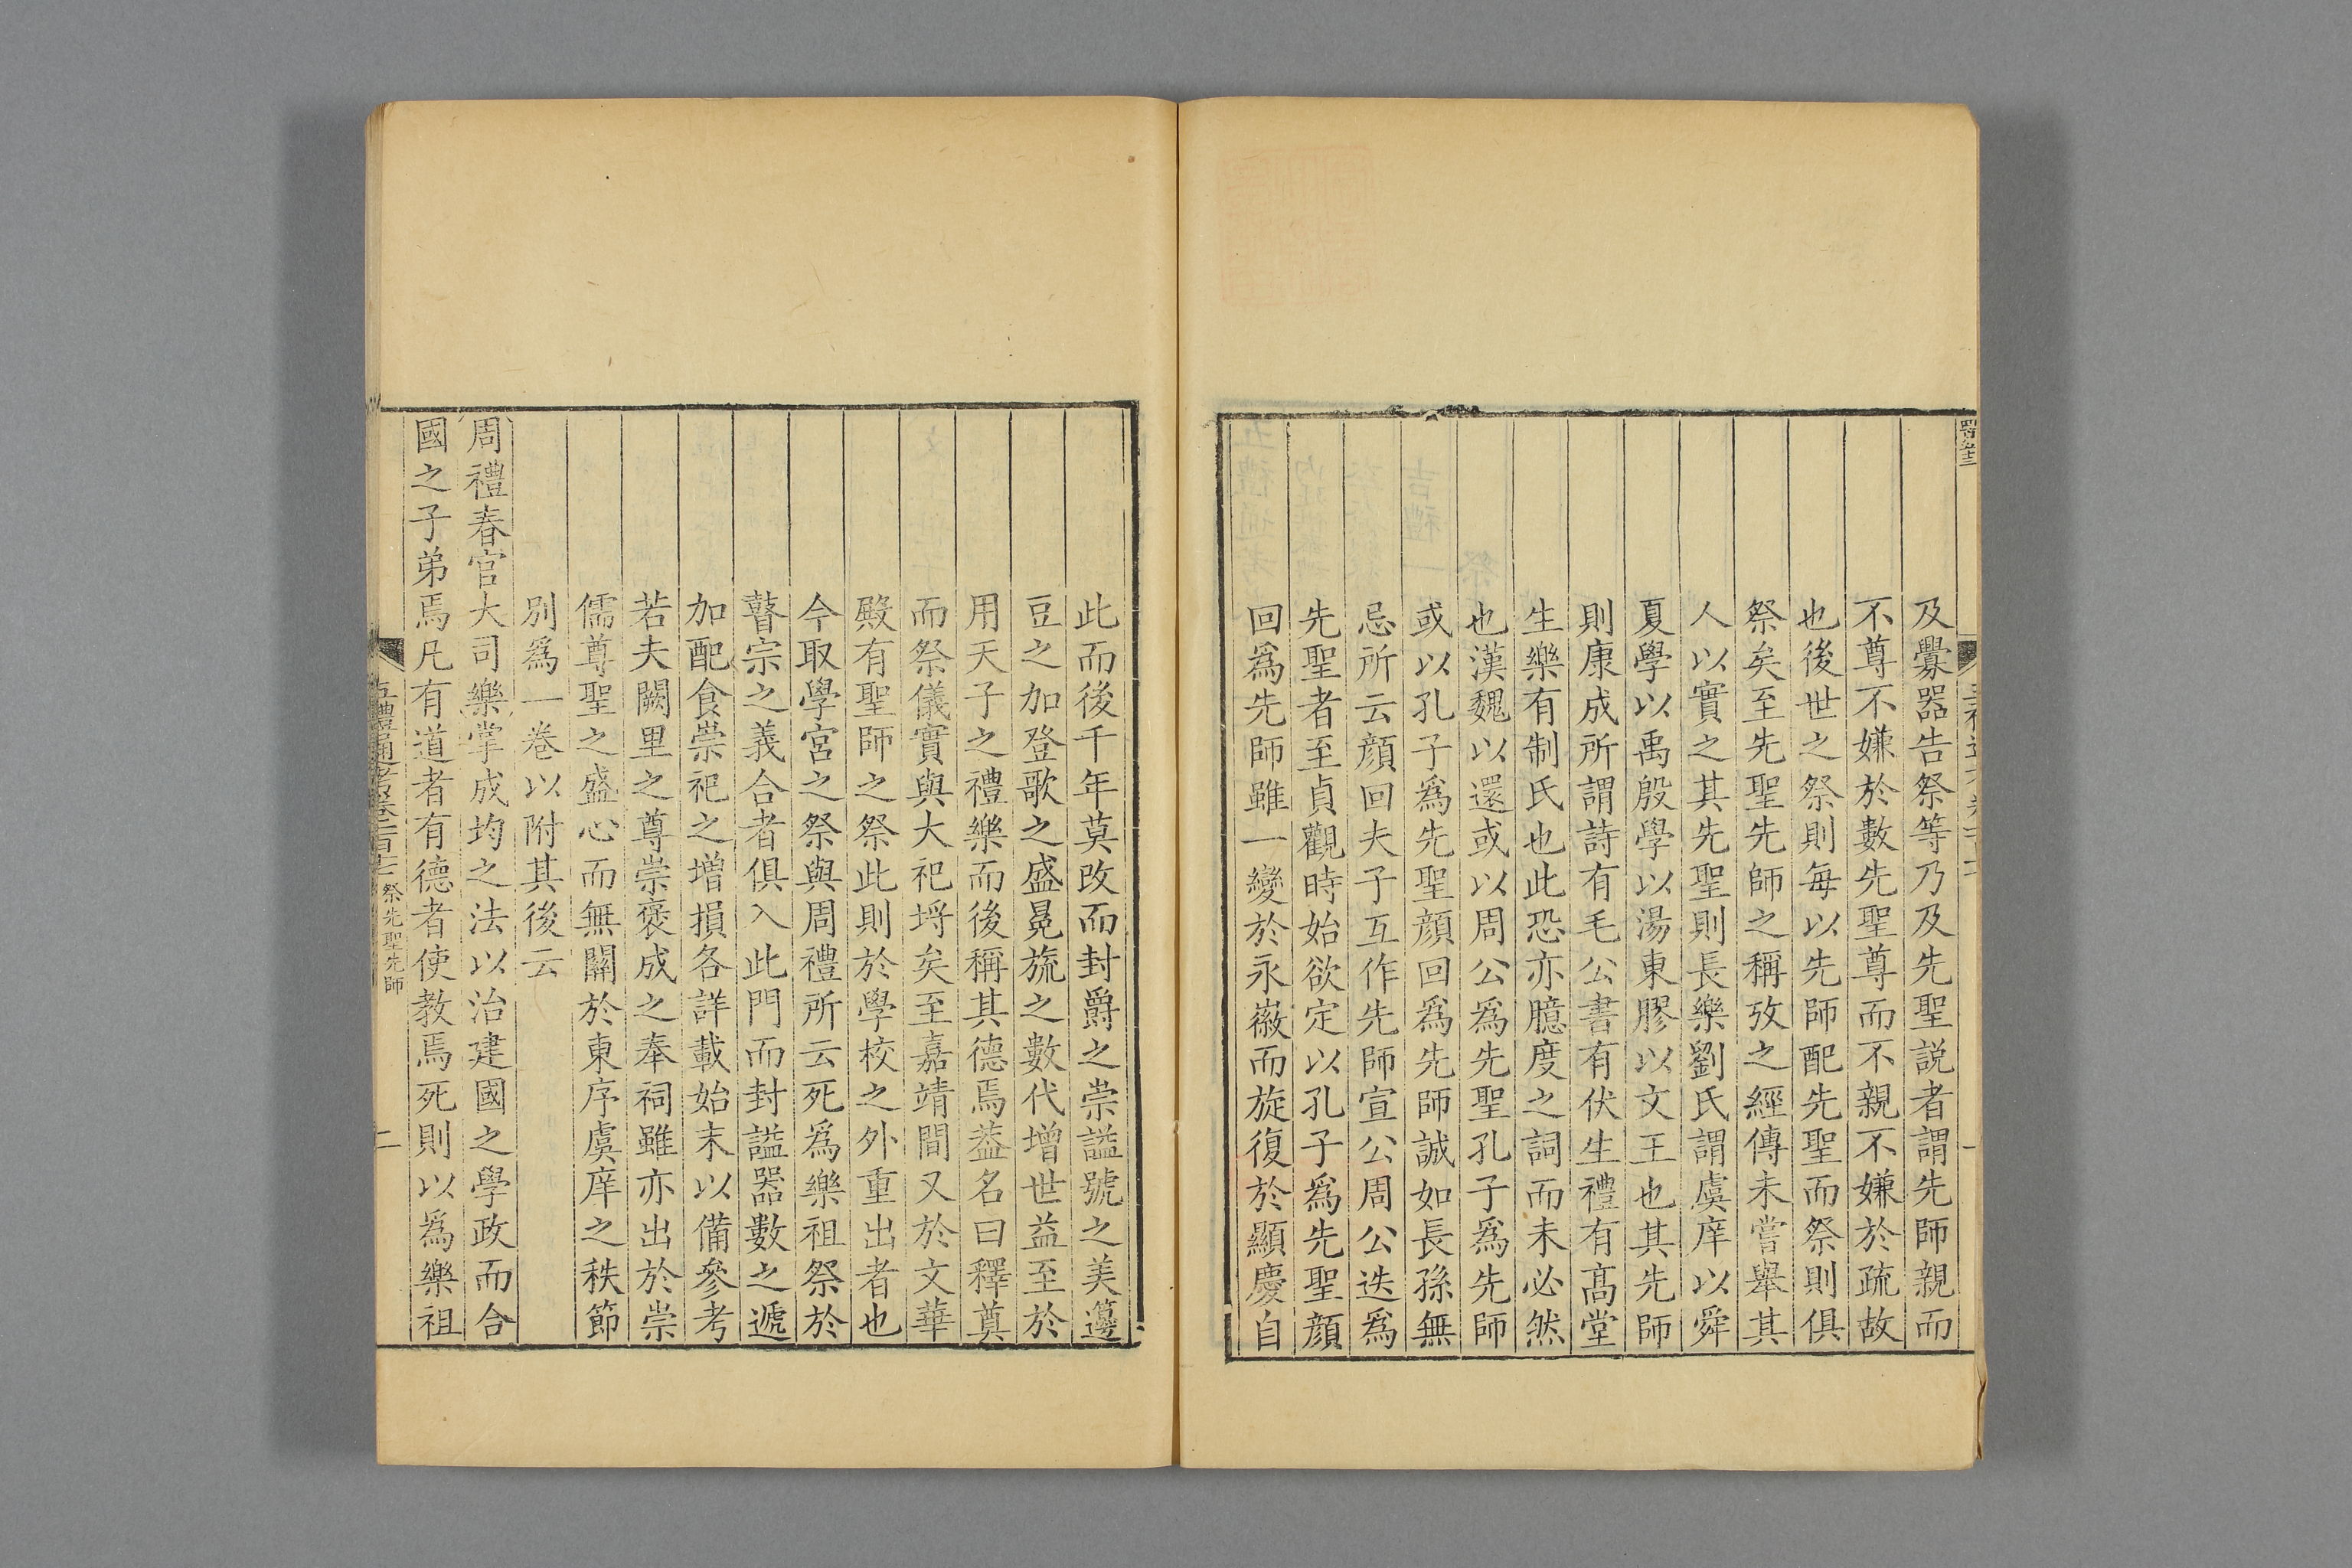 及釁器告祭等乃及先聖説者謂先師親而
不尊不嫌於數先聖尊而不親不嫌於疏故
也後世之祭則每以先師配先聖而祭則俱
祭矣至先聖先師之稱攷之經傳未嘗舉其
人以實之其先聖則長樂劉氏謂虞庠以舜
夏學以禹殷學以湯東膠以文王也其先師
則康成所謂詩有毛公書有伏生禮有髙堂
生樂有制氏也此恐亦臆度之詞而未必然
也漢魏以還或以周公爲先聖孔子爲先師
或以孔子爲先聖顔回爲先師誠如長孫無
忌所云顔回夫子互作先師宣公周公迭爲
先聖者至貞觀時始欲定以孔子爲先聖顔
回爲先師雖一變於永徽而旋復於顯慶自
此而後千年莫改而封爵之崇謚號之美籩
豆之加登歌之盛冕旒之數代增世益至於
用天子之禮樂而後稱其德焉葢名曰釋奠
而祭儀實與大祀埒矣至嘉靖間又於文華
殿有聖師之祭此則於學校之外重出者也
今取學宮之祭與周禮所云死爲樂祖祭於
瞽宗之義合者俱入此門而封謚器數之遞
加配食崇祀之增損各詳載始末以備參考
若夫闕里之尊崇褒成之奉祠雖亦出於崇
儒尊聖之盛心而無關於東序虞庠之秩節
別爲一卷以附其後云
周禮春官大司樂掌成均之法以治建國之學政而合
國之子弟焉凡有道者有德者使教焉死則以爲樂祖
五禮通考卷一百十七 祭先聖先師
二